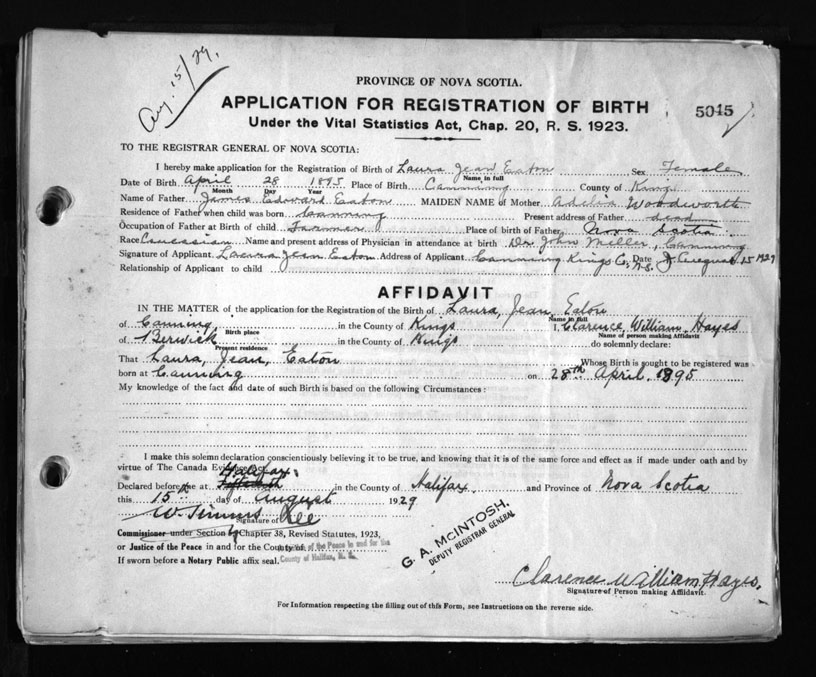 Aug. 15/29.
PROVINCE OF NOVA SCOTIA.
APPLICATION FOR REGISTRATION OF BIRTH
5045
Under the Vital Statistics Act, Chap. 20, R. S. 1923.
TO THE REGISTRAR GENERAL OF NOVA SCOTIA:
I hereby make application for the Registration of Birth of Laura Jean Eaton Sex Female
Name in full
Date of Birth April 28 1895 Place of Birth Canning County of Kings
Month Day Year
Name of Father James Edward Eaton MAIDEN NAME of Mother Adelia Woodworth
Residence of Father when child was born Canning Present address of Father dead
Occupation of Father at Birth of child Farmer Place of birth of Father Nova Scotia
Race Caucasian Name and present address of Physician in attendance at birth Dr. John Miller, Canning
Signature of Applicant Laura Jean Eaton Address of Applicant Canning Kings Co. N.S. Date August 15 1929
Relationship of Applicant to child
AFFIDAVIT
IN THE MATTER of the application for the Registration of the Birth of Laura, Jean, Eaton
Name in full
of Canning in the County of Kings I, Clarence William Hayes
Birth place Name of person making Affidavit
of Berwick in the County of Kings do solemnly declare:
Present residence
That Laura, Jean, Eaton Whose Birth is sought to be registered was
born at Canning on 28th April. 1895
My knowledge of the fact and date of such Birth is based on the following Circumstances:
I make this solemn declaration conscientiously believing it to be true, and knowing that it is of the same force and effect as if made under oath and by
virtue of The Canada Evidence Act.
Declared before me at Halifax in the County of Halifax. and Province of Nova Scotia
this 15th day of August 1929
W. Timms
Signature of
Commissioner under Section Chapter 38, Revised Statutes, 1923,
or Justice of the Peace in and for the County of of the Peace in and for the
If sworn before a Notary Public affix seal. County of Halifax, N. S.
G. A. McINTOSH,
DEPUTY REGISTRAR GENERAL
Clarence William Hayes.
Signature of Person making Affidavit.
For Information respecting the filling out of this Form, see Instructions on the reverse side.